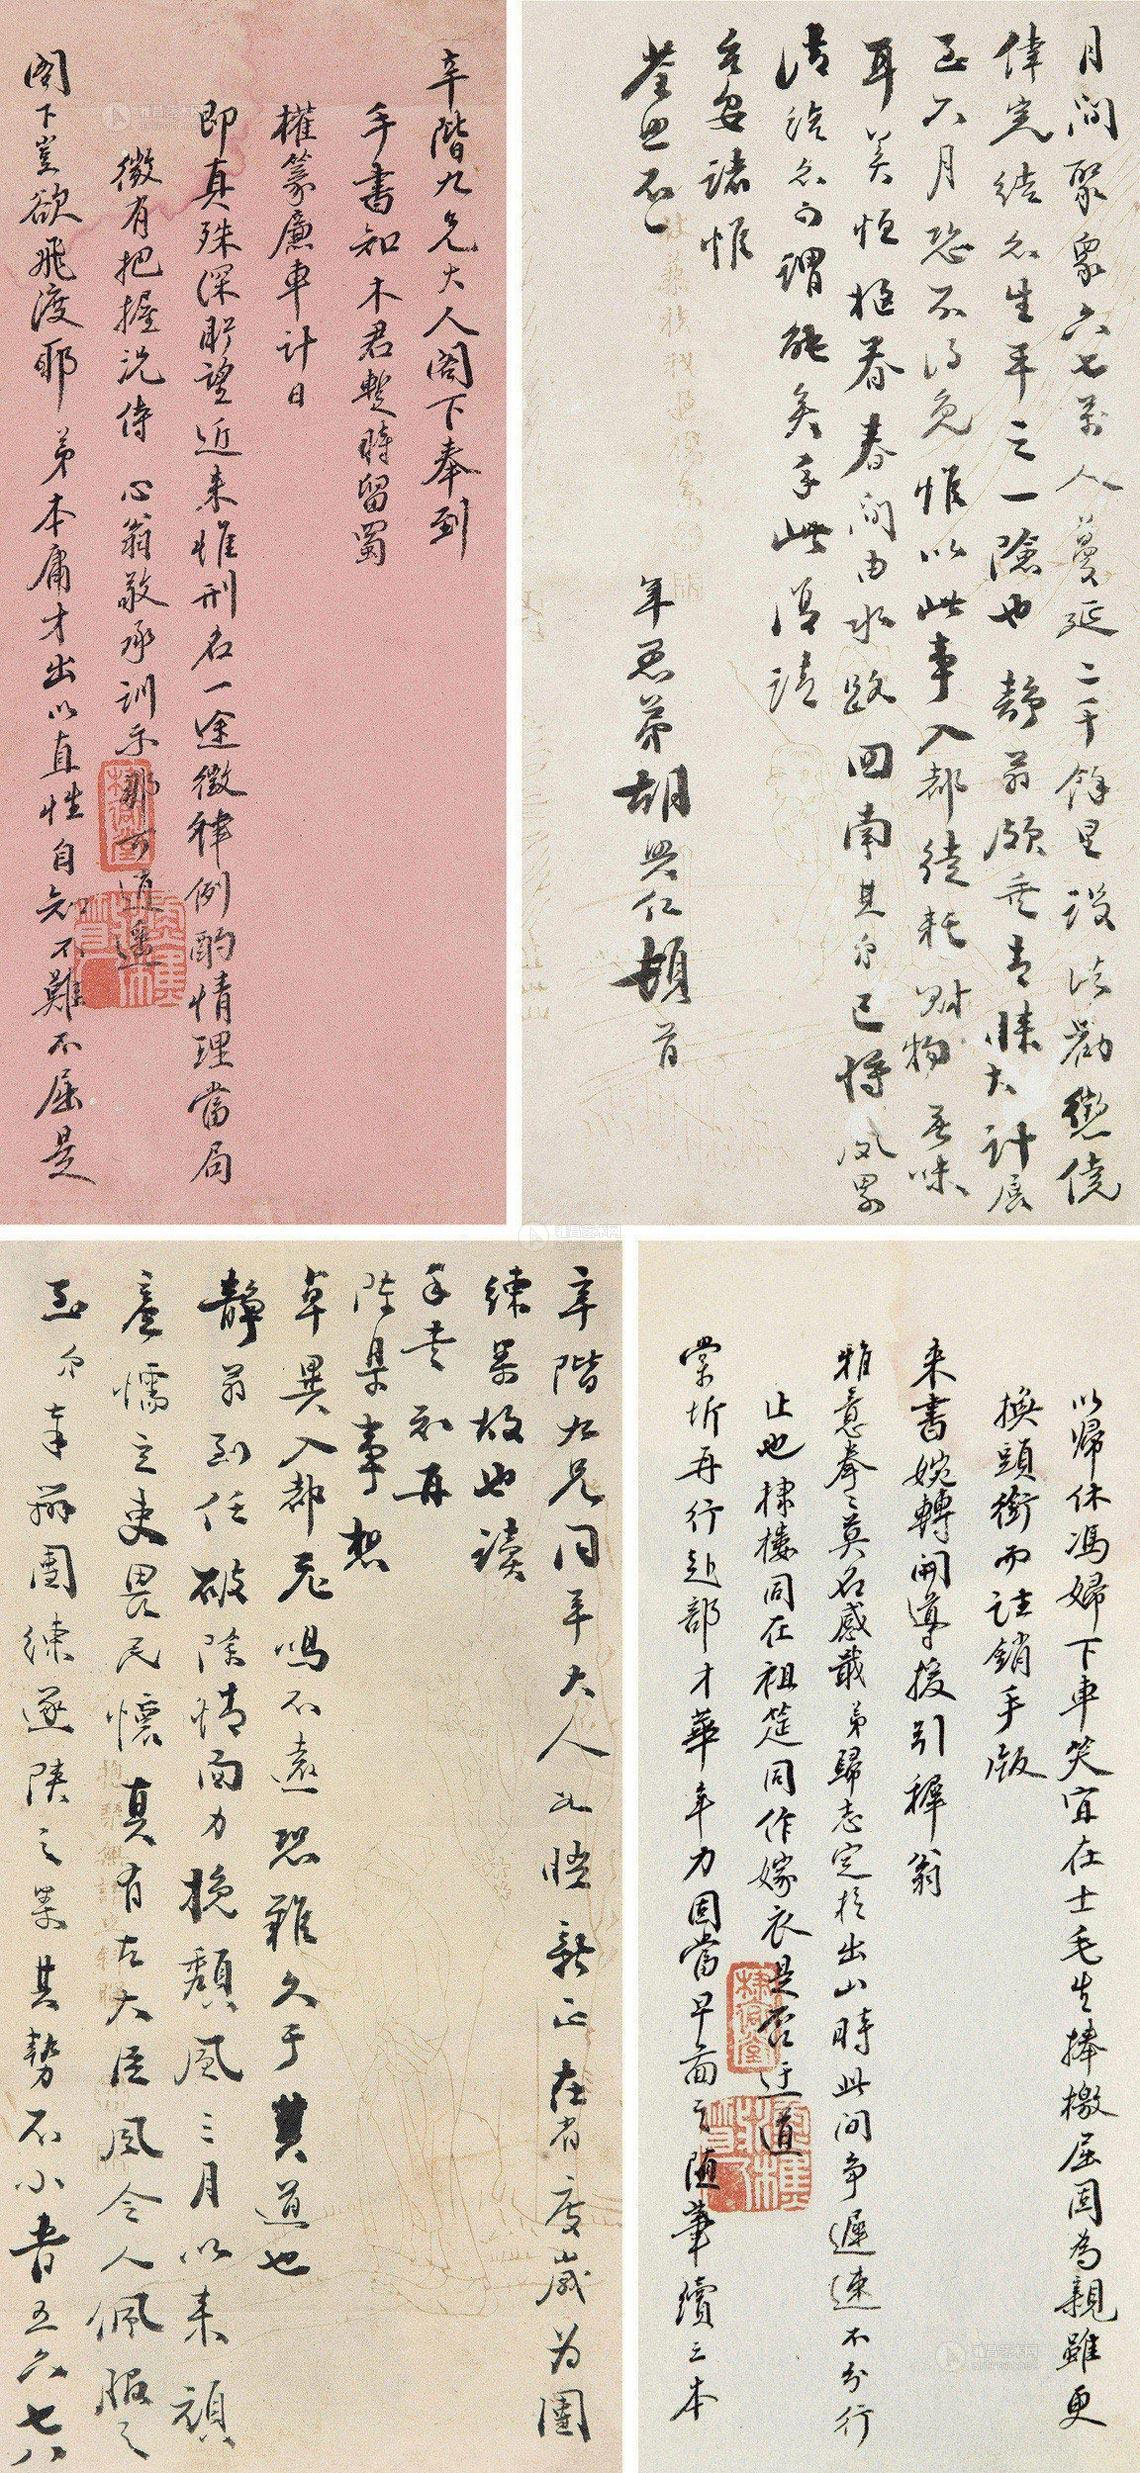 辛階九兄大人閣下奉到
手書知木君暫時留蜀
權篆廉車計日
即真殊深貯望近来惟刑名一途微律例酌情理當局
微有把握況侍心翁敬承訓示那可道遥
閣下豈欲飛渡耶弟本庸才出以直性自知不難不屈是
以歸休馮婦下車笑宜在士毛生捧檄屈固為親雖更
換頭銜而註銷手版
来書婉轉開導援引稚翁
雅意拳々莫名感戢弟歸志定於出山時此間爭遲速不分行
止也棣樓同在祖筵同作嫁衣是否迂道
棠圻再行赴部才華年力固當早面之随華續三本
辛階九兄同年大人久睽新正在省度歲為團
練畧故也讀
手書知再
陳臬事想
卓異入都飛鳴不遠恐難久于其道也
靜翁到任破除情面力挽頹風三月以来頑
廉懦立吏畏民懷真有古大臣風令人佩服之
至弟奉辦團練遂陝之界其勢不小者五六七八
月間聚眾六七萬人蔓延二千餘里設法勸懲僥
倖完結亦生平之一險也靜翁頗垂青睞大計展
至六月恐不得免惟以此事入都徒耗財物無味
耳美恒擬暮春間由水路回南其令已將夙累
清結亦可謂能矣手此復請
台安諸惟
荃照不一
年愚弟胡興仁頓首